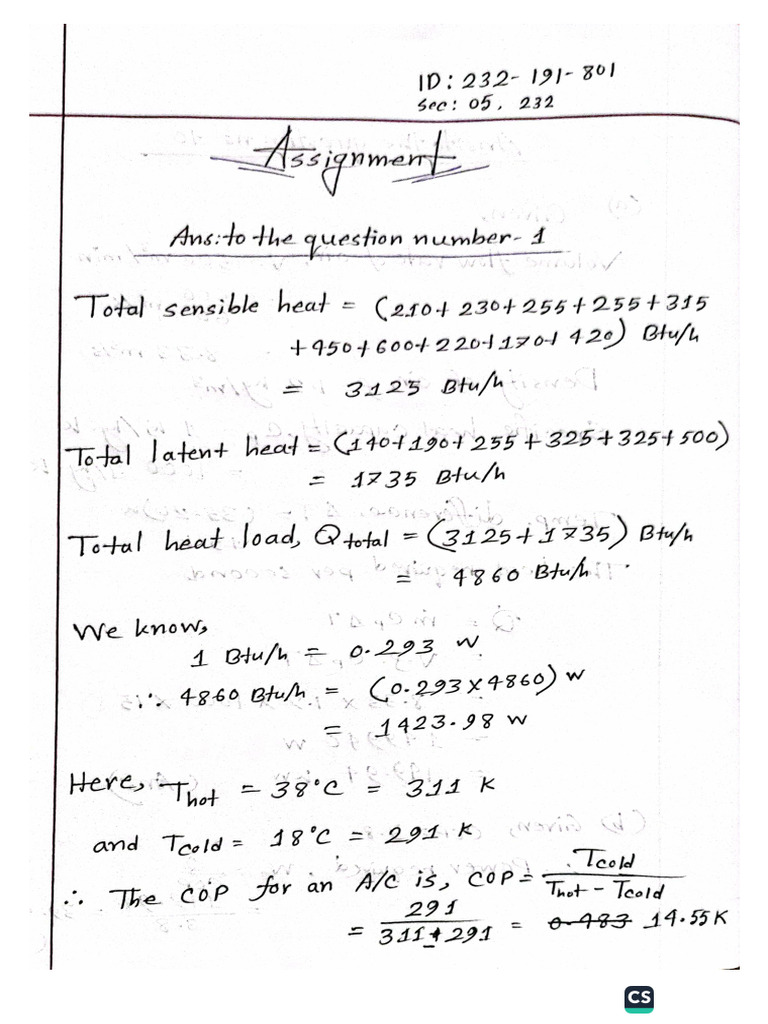 ID: 232-191-801
Sec: 05, 232
Assignment
Ans: to the question number-1
Total sensible heat = (210+ 230+255+255+315
+450+600+220+170+ 420) Btu/h
= 3125 Btu/h
Total latent heat = (140+190+255+325+325+500)
= 1735 Btu/h
Total heat load, Qtotal = (3125+1735) Btu/h
= 4860 Btu/h.
We know,
1 Btu/h = 0.293 W
∴ 4860 Btu/h = (0.293×4860) W
= 1423.98 W
Here, Thot = 38°C = 311 K
and Tcold = 18°C = 291 K
∴ The COP for an A/C is, COP = Tcold / Thot - Tcold
= 291 / 311-291 = 0.483 14.55K
CS